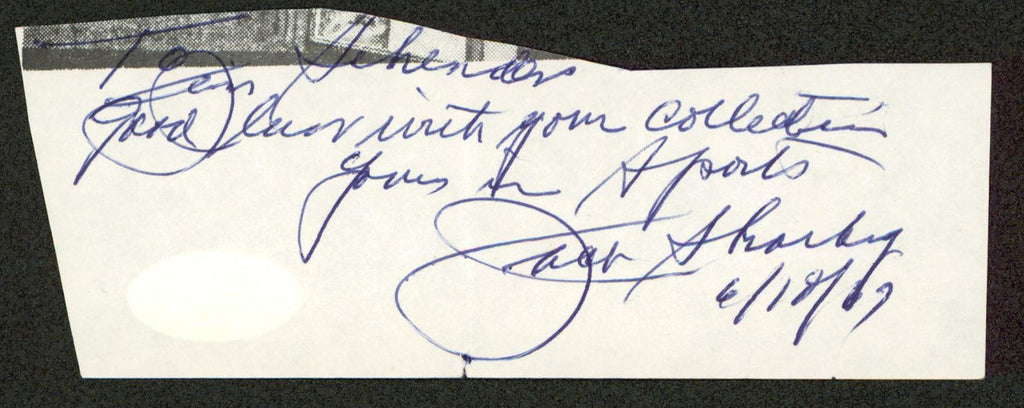 To Jim Schender
Good luck with your collection
Yours in Sports
Jack Sharkey
6/18/67